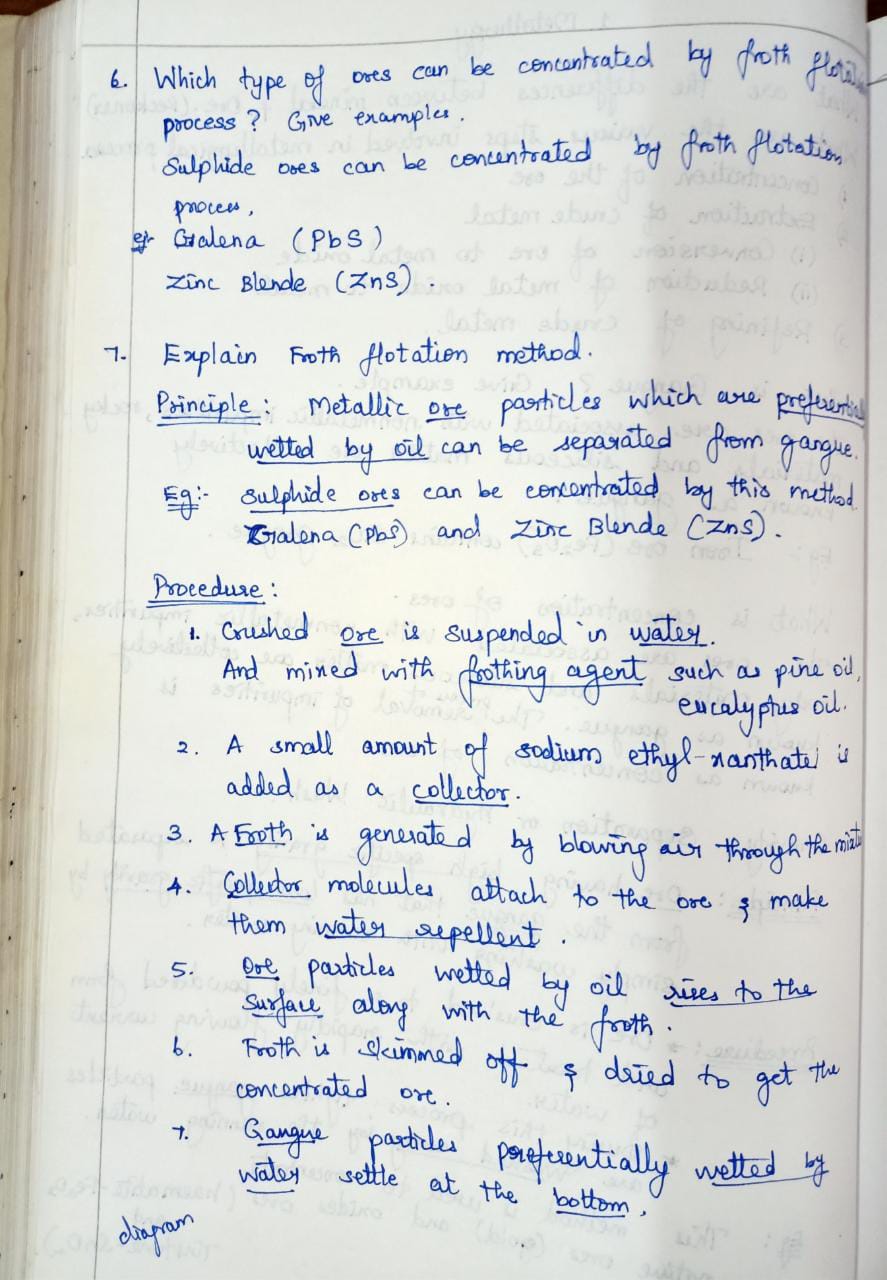 6. Which type of ores can be concentrated by froth flotation
process? Give examples.
Sulphide ores can be concentrated by froth flotation
process.
eg:- Galena (PbS)
Zinc Blende (ZnS).
7. Explain Froth flotation method.
Principle: Metallic ore particles which are preferential
wetted by oil can be separated from gangue.
Eg:- Sulphide ores can be concentrated by this method
Galena (PbS) and Zinc Blende (ZnS).
Procedure:
1. Crushed ore is suspended in water.
And mixed with frothing agent such as pine oil,
eucalyptus oil.
2. A small amount of sodium ethyl-xanthate is
added as a collector.
3. A Froth is generated by blowing air through the
4. Collector molecules attach to the ore & make
them water repellent.
5. Ore particles wetted by oil rises to the
surface along with the froth.
6. Froth is skimmed off & dried to get the
concentrated ore.
7. Gangue particles preferentially wetted by
water settle at the bottom,
diagram